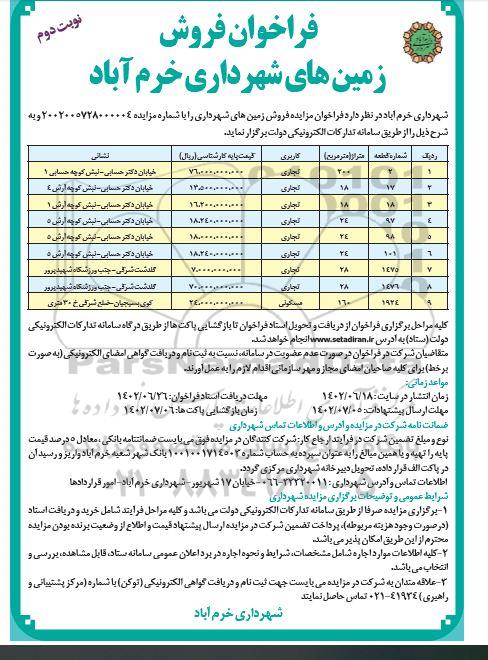 نوبت دوم
فراخوان فروش
زمین های شهرداری خرم آباد
شهرداری خرم آباد در نظر دارد فراخوان مزایده فروش زمین های شهرداری را با شماره مزایده ۲۰۰۲۰۰۵۷۲۸۰۰۰۰۰۴ و به
شرح ذیل را از طریق سامانه تدارکات الکترونیکی دولت برگزار نماید.
ردیف شماره قطعه متراژ(مترمربع) کاربری قیمت پایه کارشناسی(ریال) نشانی
۱ ۲ ۲۰۰ تجاری ۷۶,۰۰۰,۰۰۰,۰۰۰ خیابان دکتر حسابی-نبش کوچه حسابی ۱
۲ ۱۷ ۱۸ تجاری ۱۳,۵۰۰,۰۰۰,۰۰۰ خیابان دکتر حسابی-نبش کوچه آرش ۴
۳ ۱۸ ۱۸ تجاری ۱۶,۲۰۰,۰۰۰,۰۰۰ خیابان دکتر حسابی-نبش کوچه آرش ۱
۴ ۹۷ ۲۴ تجاری ۱۸,۲۴۰,۰۰۰,۰۰۰ خیابان دکتر حسابی-نبش کوچه آرش ۵
۵ ۹۸ ۲۴ تجاری ۱۸,۰۰۰,۰۰۰,۰۰۰ خیابان دکتر حسابی-نبش کوچه آرش ۵
۶ ۱۰۱ ۲۴ تجاری ۱۸,۲۴۰,۰۰۰,۰۰۰ خیابان دکتر حسابی-نبش کوچه آرش ۵
۷ ۱۴۷۵ ۲۸ تجاری ۷,۰۰۰,۰۰۰,۰۰۰ گلدشت شرقی-جنب ورزشگاه شهیدپرور
۸ ۱۴۷۶ ۲۸ تجاری ۷,۰۰۰,۰۰۰,۰۰۰ گلدشت شرقی-جنب ورزشگاه شهیدپرور
۹ ۱۹۲۴ ۱۶۰ مسکونی ۲۴,۰۰۰,۰۰۰,۰۰۰ کوی بسیجیان-ضلع شرقی خ ۳۰ متری
کلیه مراحل برگزاری فراخوان از دریافت و تحویل اسناد فراخوان تا بازگشایی پاکت ها از طریق درگاه سامانه تدارکات الکترونیکی
دولت (ستاد) به آدرس www.setadiran.ir انجام خواهد شد.
متقاضیان شرکت در فراخوان در صورت عدم عضویت در سامانه، نسبت به ثبت نام و دریافت گواهی امضای الکترونیکی (به صورت
برخط) برای کلیه صاحبان امضای مجاز و مهر سازمانی اقدام لازم را به عمل آورند.
مواعد زمانی:
زمان انتشار در سایت : ۱۴۰۲/۰۶/۱۸ مهلت دریافت اسناد فراخوان: ۱۴۰۲/۰۶/۲۶
مهلت ارسال پیشنهادات: ۱۴۰۲/۰۷/۰۵ زمان بازگشایی پاکت ها: ۱۴۰۲/۰۷/۰۶
ضمانت نامه شرکت در مزایده و آدرس و اطلاعات تماس شهرداری
نوع و مبلغ تضمین شرکت در فرایند ارجاع کار: شرکت کنندگان در مزایده فوق می بایست ضمانتنامه بانکی، معادل ۵ درصد قیمت
پایه را تهیه و یا همین مبالغ را به عنوان سپرده به حساب شماره ۱۰۰۱۰۰۱۷۱۴۵۰۳ بانک شهر شعبه خرم آباد واریز و رسید آن
در پاکت الف قرار داده، تحویل دبیرخانه شهرداری مرکزی گردد.
اطلاعات تماس و آدرس شهرداری : ۳۳۲۲۰۰۱۱-۰۶۶-خیابان ۱۷ شهریور-شهرداری خرم آباد-امور قراردادها
شرایط عمومی و توضیحات برگزاری مزایده شهرداری
۱-برگزاری مزایده صرفا از طریق سامانه تدارکات الکترونیکی دولت می باشد و کلیه مراحل فرایند شامل خرید و دریافت اسناد
(در صورت وجود هزینه مربوطه)، پرداخت تضمین شرکت در مزایده ارسال پیشنهاد قیمت و اطلاع از وضعیت برنده بودن مزایده
محترم از این طریق امکان پذیر می باشد.
۲-کلیه اطلاعات موارد اجاره شامل مشخصات، شرایط و نحوه اجاره در برد اعلان عمومی سامانه ستاد، قابل مشاهده، بررسی و
انتخاب می باشد.
۳-علاقه مندان به شرکت در مزایده می بایست جهت ثبت نام و دریافت گواهی الکترونیکی (توکن) با شماره (مرکز پشتیبانی و
راهبری) ۴۱۹۳۴-۰۲۱ تماس حاصل نمایند
شهرداری خرم آباد